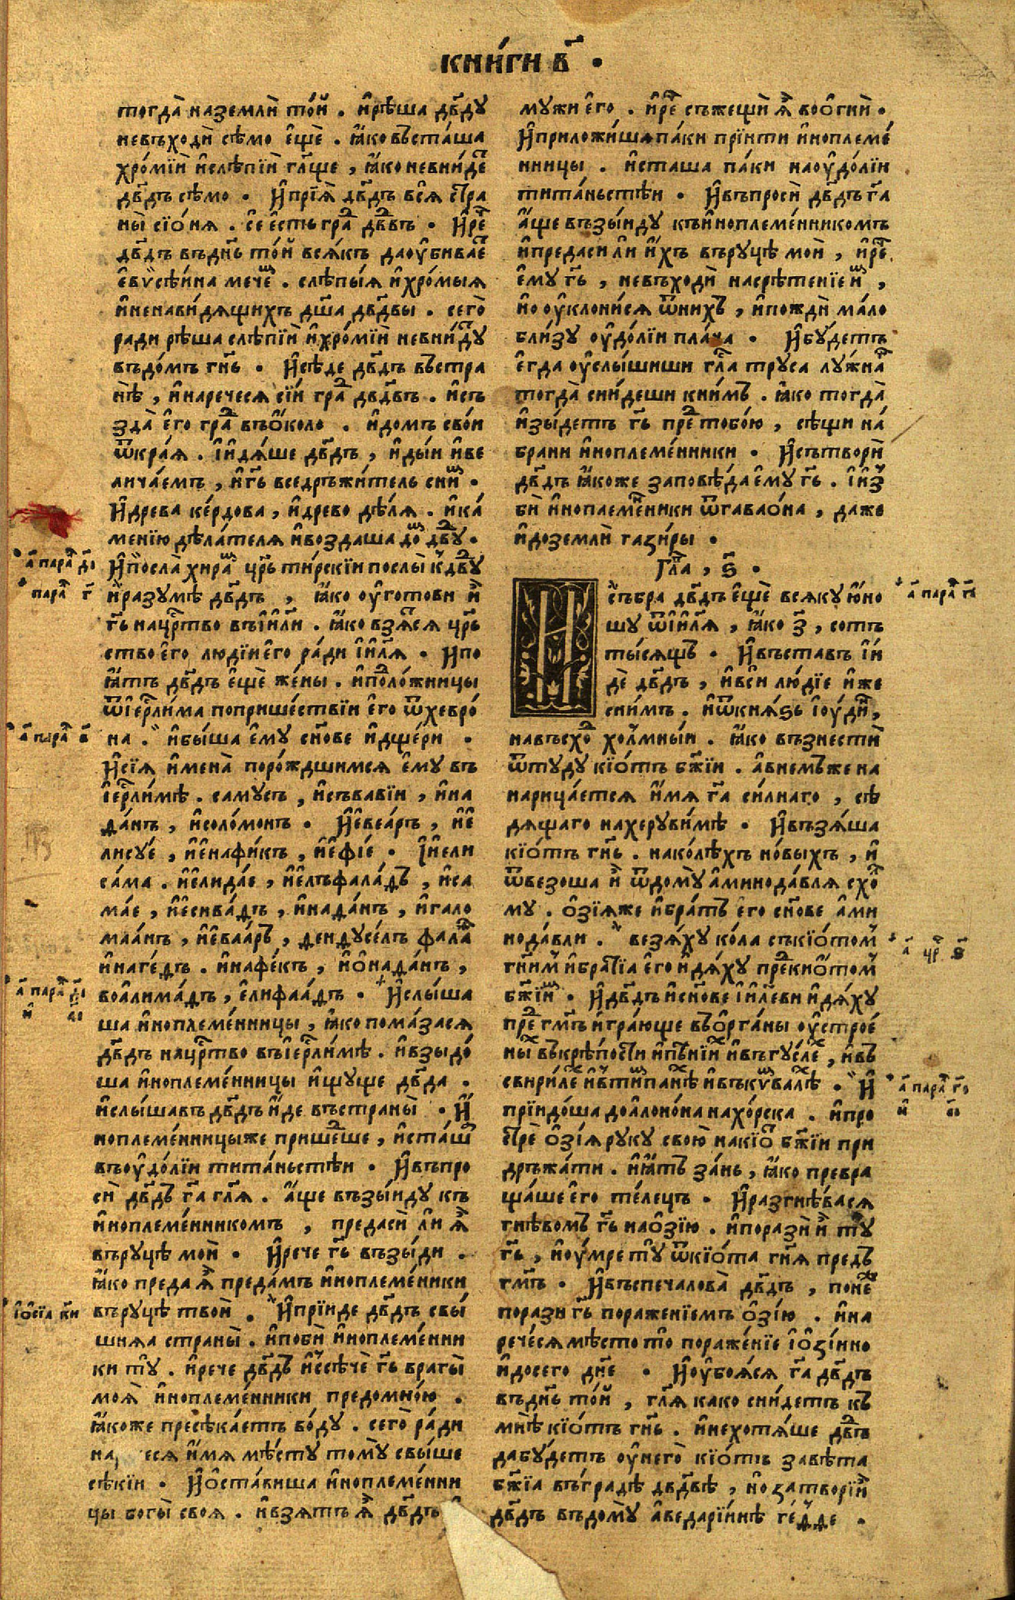 КНИ́ГИ В҃ .
тогда̀ наземлѝ то́й . и҆рѣша дв҃ду
невъходѝ сѣ́мо є҆щѐ . ꙗ҆́ковъсташа
хро́мїи и҆слѣпїи гл҃ще , ꙗ҆́коневни́детъ
дв҃дъ сѣ́мо . И҆прїѧ̀ дв҃дъ всѧ̀ стра
ны̀ сїо́нѧ . сѐ є҆́сть гра́дъ дв҃дъ . И҆речѐ
дв҃дъ въднь то́й всѧ́къ даоу҆бива́етъ
є҆вѵсе́и́на мече́мъ . слѣпы́ѧ и҆хро́мыѧ
и҆ненави́дѧщихъ дш҃а дв҃двы . сего̀
ради рѣша слѣпїи и҆хро́мїи невни́дꙋ
въдо́мъ гн҃ь . И҆сѣ́де дв҃дъ въстра
нѣ̀ , и҆наречесѧ сїѝ гра́дъ дв҃двъ . и҆съ
зда̀ є҆го̀ гра́дъ въо҆́коло . и҆до́мъ сво́и
ѿкра́ѧ . і҆и҆дѧ́ше дв҃дъ , и҆ды́и и҆ве
лича́емъ , и҆гь҃ вседръжи́тель сни́мъ .
И҆древа ке́рдова , и҆древо дѣ́лѧ . и҆ка́
менїю дѣ́лателѧ и҆воздаша до́мъ дв҃дꙋ .
И҆посла̀ хира́мъ цр҃ь ти́рскїи послы̀ кдв҃дꙋ
и҆разумѣ̀ дв҃дъ , ꙗ҆́ко оу҆гото́ви и҆̀
гь҃ нацр҃тво въі҆и҃ли . ꙗ҆́ко взѧ́сѧ цр҃ь
ство є҆го̀ людїи є҆го̀ ра́ди і҆и҃лѧ . И҆по
ꙗ҆́тъ дв҃дъ є҆щѐ же́ны . и҆поло́жницы
ѿі҆ер҃ли́ма попришествїи є҆го̀ ѿхевро́
на . и҆бы́ша є҆мꙋ сн҃ове и҆дще́ри .
И҆сїѧ̀ и҆мена̀ поро́ждшимсѧ є҆мꙋ въ
і҆ер҃ли́мѣ . саму́съ , и҆съвавїи , и҆на
да́нъ , и҆соло́монъ . И҆є҆веа́ръ , и҆є
лису́е , и҆є҆нафи́къ , и҆є҆фі́е . І҆и҆ели
са́ма . и҆є҆лида́е , и҆є҆лъфала́дъ , и҆са
ма́е , и҆є҆сива́дъ , и҆нада́нъ , и҆гало
маа́нъ , и҆є҆ваа́ръ , дендусе́лъ фала́тъ
и҆наге́дъ . и҆нафе́къ , и҆ѻ҆нада́нъ ,
воали́ма́дъ , є҆лифаа́дъ . И҆слы́ша
ша и҆ноплеме́нницы , ꙗ҆́ко пома́засѧ
дв҃дъ нацр҃тво въі҆ер҃ли́мѣ . и҆взыдо́
ша и҆ноплеме́нницы и҆щуще дв҃да .
И҆слы́шавъ дв҃дъ и҆́де въстраны̀ . И҆
ноплеме́нницыже прише́дше , и҆ста́ша
въоу҆до́лїи тита́ньстѣи . И҆въпро
сѝ дв҃дъ га҃ гл҃ѧ . а҆́ще възы́иду къ
и҆ноплеме́нникомъ , преда́сѝ ли ѧ҆̀
въру́цѣ мои̂ . И҆рече гь҃ възы́ди .
ꙗ҆́ко преда́ѧ҆ преда́мъ и҆ноплеме́ники
въру́цѣ твои̂ . И҆прїи́де дв҃дъ свы́
шнѧа страны̀ . и҆побѝ и҆ноплеме́нни
ки тꙋ̀ . и҆рече дв҃дъ и҆ссѣчѐ гь҃ врагы̀
моѧ̀ и҆ноплеме́нники предомно́ю .
ꙗ҆́коже пресѣка́етъ во́ду . сего̀ ра́ди
на еся и҆́мѧ мѣ́сту тому̀ свы́ше
сѣ́кїи . И҆ѻ҆ста́виша и҆ноплеме́нни
цы бого̀и своѧ̀ . и҆взѧ́тъ ѧ҆̀ дв҃дъ
мꙋ́жи є҆го̀ . и҆речѐ съже́щѝ ѧ҆̀ воо҆гнѝ .
И҆приложи́шапа́ки прїити и҆ноплеме́
нницы . и҆сташа па́ки наоу҆до́лїи
тита́ньстѣи . И҆въпросѝ дв҃дъ га҃
а҆́ще възы́иду къи҆ноплеме́нникомъ
и҆преда́си ли и҆́хъ въру́цѣ мои̂ , и҆речѐ
є҆мꙋ гь҃ , невъходѝ насрѣ́тенїе и҆̀мъ ,
но оу҆клони́сѧ ѿни́хъ , и҆пождѝ ма́ло
бли́зꙋ оу҆до́лїи пла́ча . И҆бу́детъ
є҆гда оу҆слы́шиши гла́ тру́са лу́жна
тогда̀ сни́деши кни́мъ . ꙗ҆́ко тогда̀
и҆зы́детъ гь҃ пре́дтобо́ю , сѣщи на́
брани и҆ноплеме́нники . И҆сътворѝ
дв҃дъ ꙗ҆́коже заповѣ́да є҆мꙋ гь҃ . І҆и҆з
бѝ и҆ноплеме́ники ѿгавао́на , даже
и҆доземлѝ гази́ры .
Гла҃ , ѕ҃ .
И҆събра̀ дв҃дъ є҆щѐ всѧ́кꙋ ю҆но
шу ѿі҆и҃лѧ , ꙗ҆́ко з҃ , сотъ
ты́сѧщъ . И҆въставъ і҆и҆
дѐ дв҃дъ , и҆всѝ лю́дїе и҆́же
сни́мъ . и҆ѿкнѧ́зь і҆ю́динъ,
навъсхо́дъ хо́лмныи . ꙗ҆́ко възнестѝ
ѿтꙋ́дꙋ кїо́тъ бж҃їи . а҆внемъ́же на
нарица́етсѧ и҆́мѧ га҃ силнаго , сѣ
дѧщаго нахеруви́мѣ . И҆възѧ́ша
кїо́тъ гн҃ь . нако́лѣхъ но́выхъ , и҆
ѿвезоша и҆̀ ѿдому̀ а҆минода́влѧ схо́л
му . ѻ҆зїѧже и҆бра́тъ є҆го̀ сн҃ове а҆ми
нода́вли . везѧ́ху ко́ла съкїо́томъ
гн҃имъ и҆бра́тїа є҆го̀ и҆дѧ́ху пре́дкио́томъ
бж҃їимъ . И҆дв҃дъ и҆сн҃ове і҆и҃леви и҆дѧ́ху
пре́д гм҃ъ и҆гра́юще въо҆рга́ны оу҆строе́
ны̀ въкрѣ́пости и҆пѣ́нїи и҆въгу́слехъ , и҆въ
свирі́лехъ и҆втѷмпа́нѣхъ и҆въкѷмва́лѣхъ . И҆
прїидо́ша доало́но́на нахо́рска . и҆про
стрѐ ѻ҆́зїѧ ру́ку свою̀ накїо́тъ бж҃їи при
дръжа́ти . и҆ꙗ҆́тъ за́нь , ꙗ҆́ко превра
ща́ше є҆го̀ те́лецъ . И҆разгнѣ́васѧ
гнѣ́вомъ гь҃ наѻ҆́зїю . и҆поразѝ и҆̀ тꙋ
гь҃ , и҆оу҆́мре тꙋ̀ ѿкїо́та гн҃ѧ предъ
гм҃ъ . И҆въспечалова̀ дв҃дъ , поне́же
поразѝ гь҃ пораженїемъ ѻ҆́зїю . и҆на
рече́сѧ мѣ́сто то̀ пораже́нїе і҆ѻ҆́зїино
и҆до́сего дне̂ . И҆оу҆боѧ́сѧ га҃ дв҃дъ
въднь то́й , гл҃ѧ како сни́детъ къ
мнѣ̀ кїо́тъ гн҃ь . и҆нехотѧ́ше дв҃дъ
дабу́детъ оу҆него̀ кїо́тъ заве́та
бж҃їа въгра́дѣ дв҃двѣ , но затворѝи҆̀
дв҃дъ въдому̀ а҆ведарїи́нѣ ге́дде .
а҃ пара́л д҃і
пара́л г҃
а҃ пара́л в҃
а҃ пара́л
а҃ пара́л г҃і
а҃ цр҃ ѕ҃
а҃ пара́л г҃і